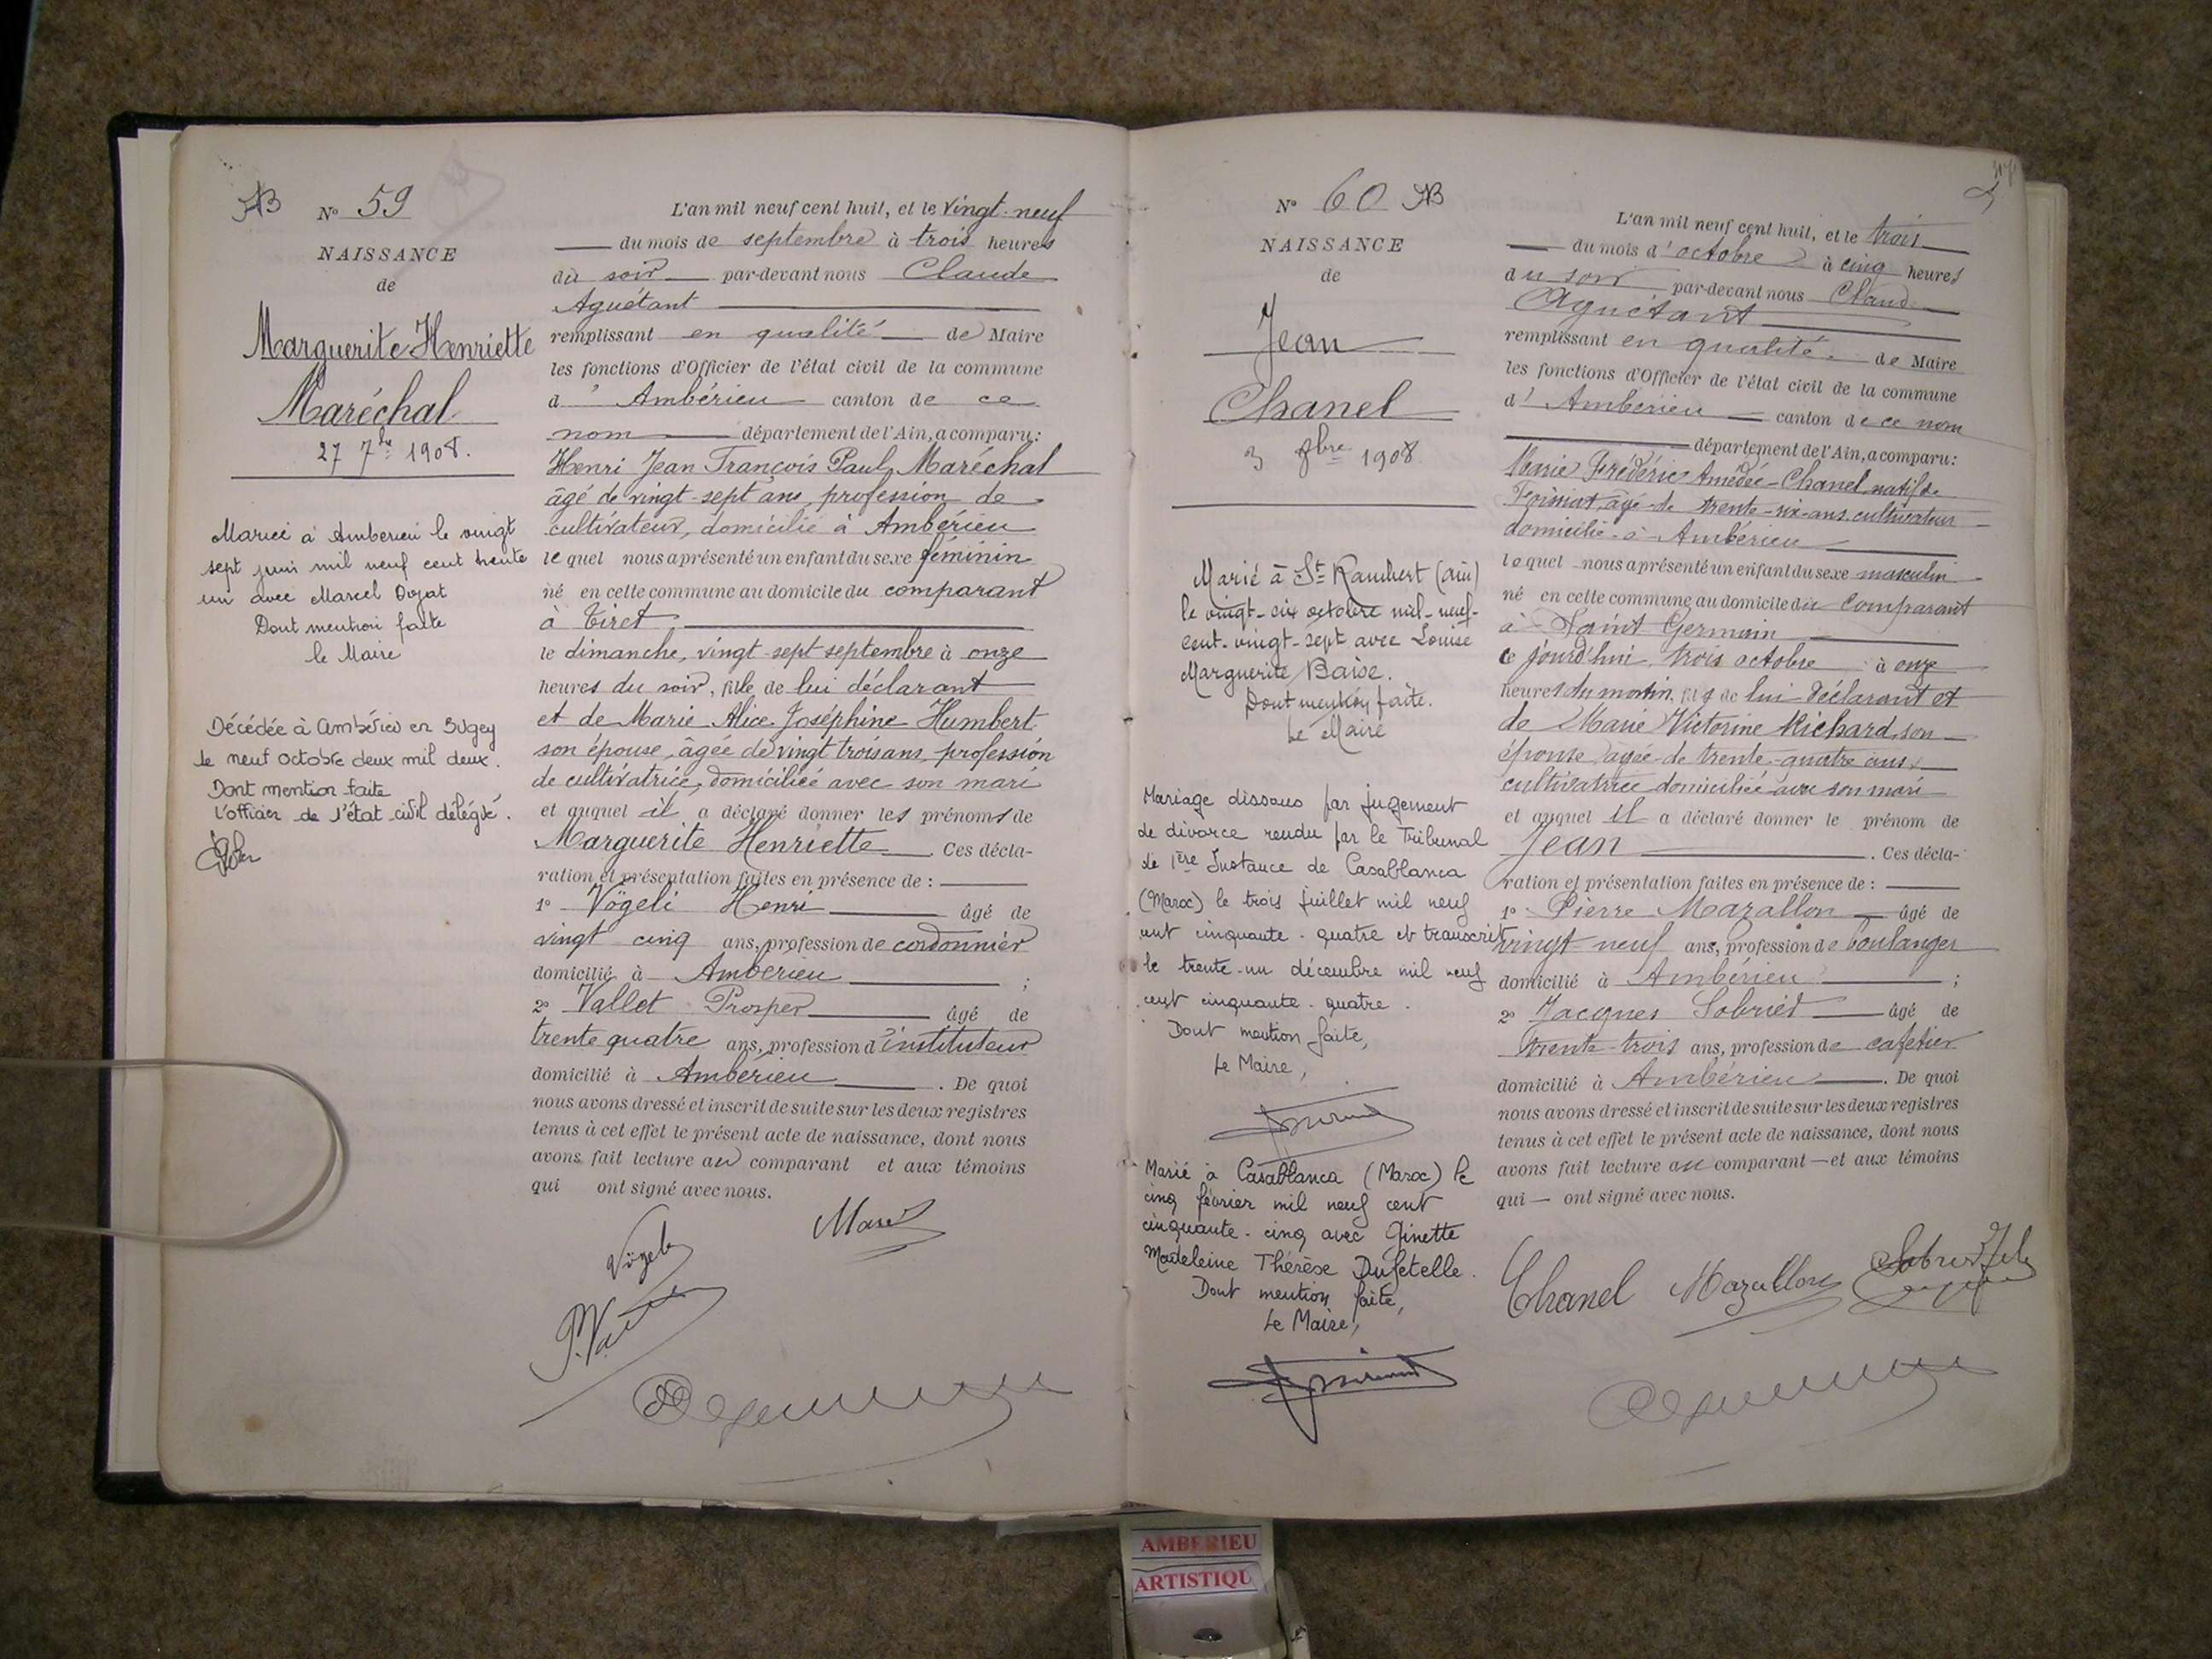 AB N° 59
NAISSANCE
de
Marguerite Henriette
Maréchal
27 7bre 1908.
Mariée à Amberieu le vingt
sept juin mil neuf cent trente
un avec Marcel
Dont mention faite
le Maire
Décédée à Ambérieu en Bugey
le neuf octobre deux mil deux.
Dont mention faite
L'officier de l'état civil délégué.
L'an mil neuf cent huit, et le vingt-neuf
du mois de septembre à trois heures
du soir par-devant nous Claude
Aguétant
remplissant en qualité de Maire
les fonctions d'Officier de l'état civil de la commune
d'Ambérieu canton de ce
nom département de l'Ain, a comparu:
Henri Jean François Paul Maréchal
âgé de vingt-sept ans, profession de
cultivateur, domicilié à Ambérieu
le quel nous a présenté un enfant du sexe féminin
né en cette commune au domicile du comparant
à Tiret
le dimanche, vingt-sept septembre à onze
heures du soir, fille de lui déclarant
et de Marie Alice Joséphine Humbert
son épouse, âgée de vingt trois ans, profession
de cultivatrice, domiciliée avec son mari
et auquel il a déclaré donner les prénoms de
Marguerite Henriette. Ces décla-
ration et présentation faites en présence de :
1° Vögeli Henri âgé de
vingt cinq ans, profession de cordonnier
domicilié à Ambérieu ;
2° Vallet Prosper âgé de
trente quatre ans, profession d'instituteur
domicilié à Ambérieu. De quoi
nous avons dressé et inscrit de suite sur les deux registres
tenus à cet effet le présent acte de naissance, dont nous
avons fait lecture au comparant et aux témoins
qui ont signé avec nous.
Vögeli
N° 60 AB
NAISSANCE
de
Jean
Chanel
3 8bre 1908
Marié à St Rambert (Ain)
le vingt-six octobre mil-neuf-
cent-vingt-sept avec Louise
Marguerite Baise.
Dont mention faite.
Le Maire
Mariage dissous par jugement
de divorce rendu par le Tribunal
de 1ère Instance de Casablanca
(Maroc) le trois juillet mil neuf
cent cinquante-quatre et transcrit
le trente-un décembre mil neuf
cent cinquante-quatre.
Dont mention faite,
Le Maire,
Marié à Casablanca (Maroc) le
cinq février mil neuf cent
cinquante-cinq avec Ginette
Madeleine Thérèse Dufetelle.
Dont mention faite,
Le Maire,
L'an mil neuf cent huit, et le trois
du mois d'octobre à cinq heures
du soir par-devant nous Claude
Aguétant
remplissant en qualité de Maire
les fonctions d'Officier de l'état civil de la commune
d'Ambérieu canton de ce nom
département de l'Ain, a comparu:
Marie Frédéric Amédée Chanel, natif de
âgé de trente-six-ans, cultivateur
domicilié à Ambérieu
le quel nous a présenté un enfant du sexe masculin
né en cette commune au domicile du comparant
à Saint Germain
ce jourd'hui, trois octobre à onze
heures du matin, fils de lui déclarant et
de Marie Victorine Richard, son
épouse âgée de trente-quatre ans,
cultivatrice domiciliée avec son mari
et auquel il a déclaré donner le prénom de
Jean. Ces décla-
ration et présentation faites en présence de :
1° Pierre Mazallon âgé de
vingt neuf ans, profession de boulanger
domicilié à Ambérieu ;
2° Jacques Sobriet âgé de
trente-trois ans, profession de cafetier
domicilié à Ambérieu. De quoi
nous avons dressé et inscrit de suite sur les deux registres
tenus à cet effet le présent acte de naissance, dont nous
avons fait lecture au comparant et aux témoins
qui ont signé avec nous.
Chanel Mazallon
AMBERIEU
ARTISTIQU